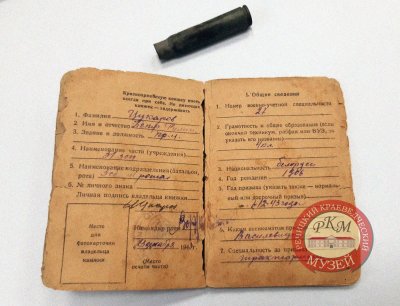 Красноармейскую книжку иметь
всегда при себе. Не имеющих
книжек — задерживать
1. Фамилия Цуканов
2. Имя и отчество Петр
3. Звание и должность кр-ц
4. Наименование части (учреждения)
5. Наименование подразделения (батальон,
рота)
6. № личного знака
Личная подпись владельца книжки
Место
для
фотокарточки
владельца
книжки
Командир роты
194 г.
(Место
печати части)
I. Общие сведения
1. Номер военно-учетной специальности
21
2. Грамотность и общее образование (если
окончил техникум, рабфак или ВУЗ, то
указать его название)
4 кл
3. Национальность белорус
4. Год рождения 1906
5. Год призыва (указать также — нормаль-
ный или досрочный призыв)
6. Каким военкоматом призван
7. Специальность до призыва
тракторист
РЕЧИЦКИЙ КРАЕВЕДЧЕСКИЙ
РКМ
МУЗЕЙ